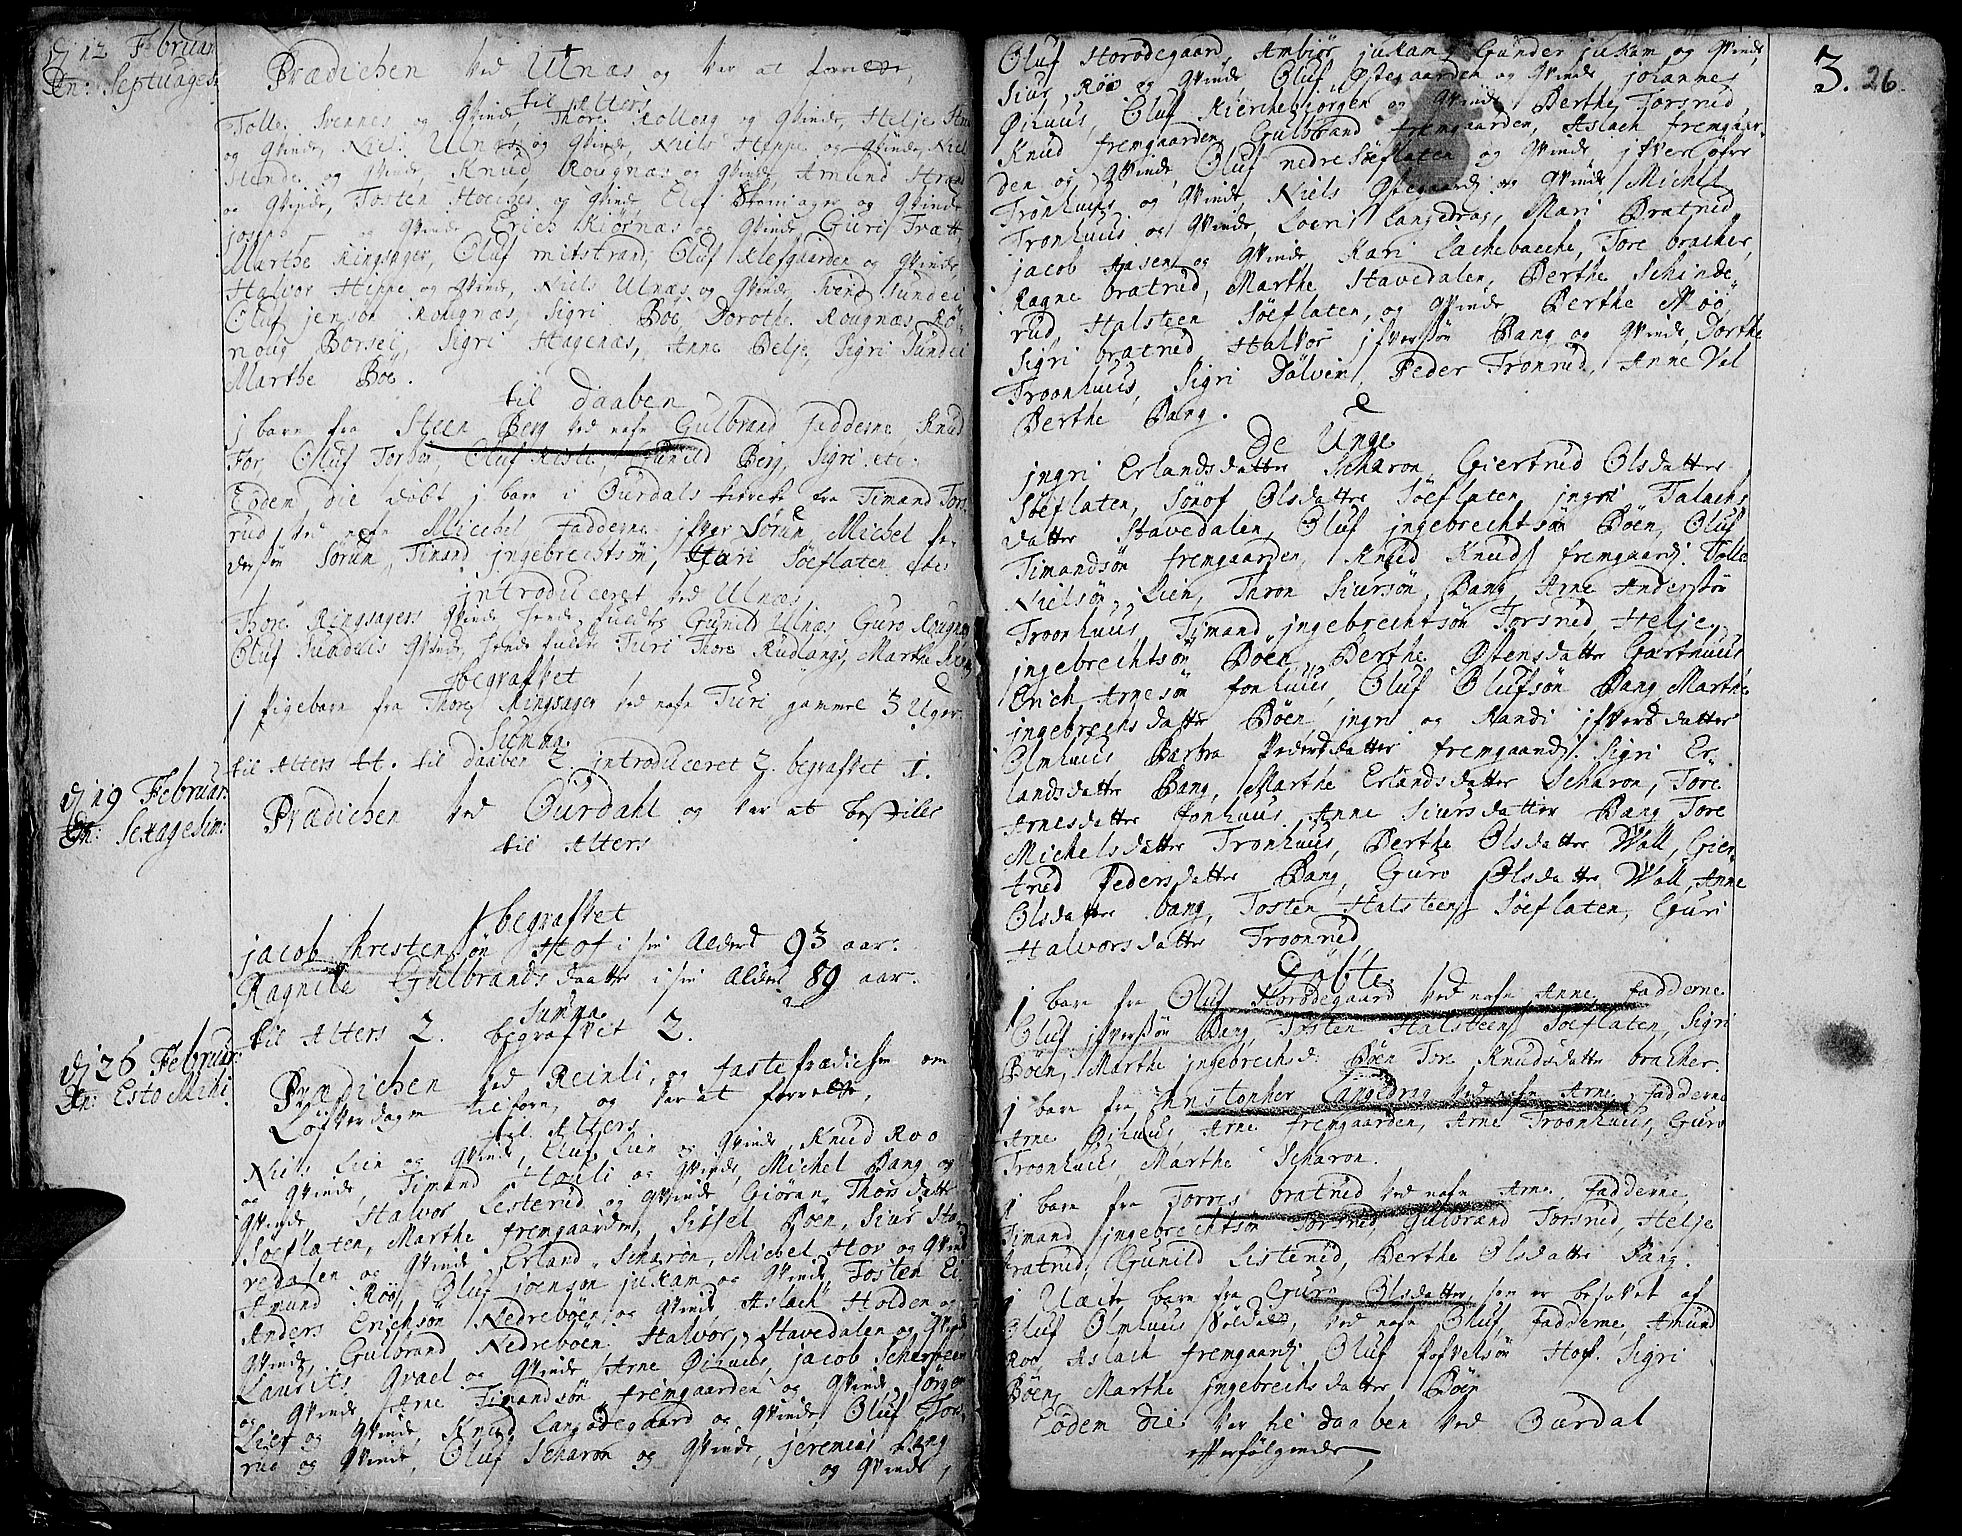 dj 12 Februar.
Dn: Septuages:
Prædichen ved Ulnæs og var at forrette
til Alters
Tolle Svennes og Qvinde, Thore Kollong og Qvinde, Helje
og Qvinde, Niels Ulnæs og Qvinde, Niels Hippe og Qvinde, Niels
Sunde og Qvinde, Knud Rougnæs og Qvinde, Amund
og Qvinde, Tosten og Qvinde, Olef og Qvinde
joseph og Qvinde Erich Kiørnæs og Qvinde, Guri Træt
Marthe Ringsager, Oluf mitstrand, Oluf Klefgaarden og Qvinde,
Halvor Hippe og Qvinde, Niels Ulnæs og Qvinde, Svend Sundei
Oluf jensøn Rougnæs, Sigri Böe Dorothe Rougnæs, Rø-
noug Borsei, Sigri Hagenæs, Anne Belje, Sigri Sundei
Marthe Böe.
til daaben
j barn fra Steen Berg ved nafn Gulbrand Fadderne, Knud
For, Oluf Oluf Gunild Berg, Sigri etc.
Eodem die døbt j barn i Ourdals kircke fra Timand Tors-
rud, ved nafn Michel Fadderne jfver Sørum, Michel Pe-
dersøn Sørum, Timand jngebrechtsøn, Kari Söeflaten etc
introduceret ved Ulnæs
Thore Ringsagers Qvinde hende fuldte Gunild Ulnæs, Guro Rougnæs
Oluf Sundeis Qvinde, hende fuldte Turi Thore Rudlangs, Marthe
begrafvet
j Pigebarn fra Thore Ringsager ved nafn Turi, gammel 3 Uger.
Summa.
til Alters 44. til daaben 2. introduceret 2. begrafvet 1.
dj 19 Februar.
Dn: Sexagesim:
Prædichen ved Ourdahl og var at bestille
til Alters
begrafvet
jacob Chrestensøn Hof i sin Alders 93 aar.
Ragnila Gulbrandsdaatter i sin Alder 89 aar.
Summa
til Alters 2. begrafvet 2.
dj 26 Februar.
Dn: Esto Mihi.
Prædichen ved Reinli, og fasteprædichen om
Løfverdagen tilforn, og var at forrette,
til Alters
Niels Lien og Qvinde, Oluf Lien og Qvinde, Knud Roo
og Qvinde, Timand Houli og Qvinde, Michel Bang og
Qvinde, Halvor Lesterud og Qvinde, Giøran Thorsdatter
Söeflaten, Marthe fremgaarden, Sissel Böen, Siur Sta-
vedalen og Qvinde, Erland Scharon, Michel Hov og Qvinde
Amund Roo, Oluf joensøn jukam og Qvinde, Tosten
Anders Erichsøn Nedreböen og Qvinde Aslach Holden og
Qvinde, Gulbrand Nedreböen Halvor Stavedalen og Qvinde
Laurits Qvael og Qvinde Arne Øihuus, jacob
og Qvinde Arne Timandsøn fremgaarden og Qvinde, Jørgen
Lien og Qvinde, Knud Langödegaard og Qvinde, Oluf Tors-
rud og Qvinde, Oluf Scharon og Qvinde, jeremias Bang
og Qvinde,
3. 26.
Oluf Storödegaard, Ambiör jukam, Gunder jukam og Qvinde,
Siur Röe og Qvinde, Oluf Østegaarden og Qvinde, joiannes
Øihuus, Oluf Kierchebiörgen og Qvinde, Berthe Torsrud,
Knud fremgaarden, Gulbrand fremgaarden, Aslach fremgaar-
den og Qvinde, Oluf nedre Söeflaten og Qvinde, jfver öfre
Tronhuus, og Qvinde, Niels Østegaard og Qvinde, Michel
Tronhuus og Qvinde, Loeri Langedrag, Mari Bratrud,
jacob Aasen og Qvinde, Kari Lachebacche, Tore bracker,
Ragne bratrud, Marthe Stavedalen, Berthe Schinde-
rud, Halsteen Söeflaten, og Qvinde Berthe Moo
Sigri bratrud Halvor jfversøn Bang og Qvinde, Dorthe
Troonhuus, Sigri Dölven, Peder Tronrud, Anne Vol
Berthe Bang.
De Unge
jngri Erlandsdatter Scharon, Giertrud Olsdatter
Söeflaten, Sönof Olsdatter Söeflaten, jngri Falachs
datter Stavedalen, Oluf jngebrechtsøn Böen, Oluf
Timandsøn fremgaarden, Knud Knuds fremgaard. Tolle
Nielsøn Lien, Thron Siursøn, Bang, Arne Anderssøn
Troonhuus, Timand jngebrechtsøn Torsrud, Helje
jngebrechtsøn Böen, Berthe Østensdatter Garthuus
Erich Arnesøn fonhuus, Oluf Olufsøn Bang Marthe
jngebrechsdatter Böen, jngri og Randi jfversdatter
Olmhuus Barbra Pedersdatter fremgaard. Sigri Er-
landsdatter Bang, Marthe Erlandsdatter Scharon, Tore
Arnesdatter fonhuus, Anne Siursdatter Bang, Tore
Michelsdatter Tronhuus, Berthe Olsdatter Woll, Gier-
trud Pedersdatter Bang, Guro Olsdatter Woll, Anne
Olsdatter bang, Tosten Halsteens Söeflaten, Guri
Halvorsdatter Troonrud
Döbte
j barn fra Oluf Storödegaard ved nafn Anne, Fadderne
Oluf jfversøn Bang, Tosten Halsteens Söeflaten, Sigri
Böen, Marthe jngebrechsd: Böen Tore Knudsdatter bracker.
j barn fra Christopher Langedrag ved nafn Arne, Fadderne
Arne Øihuus, Arne fremgaarden, Arne Troonhuus, Guro
Troonhuus, Marthe Scharon.
j barn fra Torres bratrud ved nafn Arne, Fadderne,
Timand jngebrechtsøn Torsrud, Gulbrand Torsrud, Helje
bratrud, Gunild Listerud, Berthe Olsdatter Bang.
j Uæite barn fra Guro Olsdatter, som er besofvet af
Oluf Olmhuus Soldat, ved nafn Oluf, Fadderne, Amund
Roo Aslach fremgaard. Oluf Pofvelsøn Hof. Sigri
Böen, Marthe jngebrechsdatter Böen
Eodem die var til daaben ved Ourdal
efterfølgende,